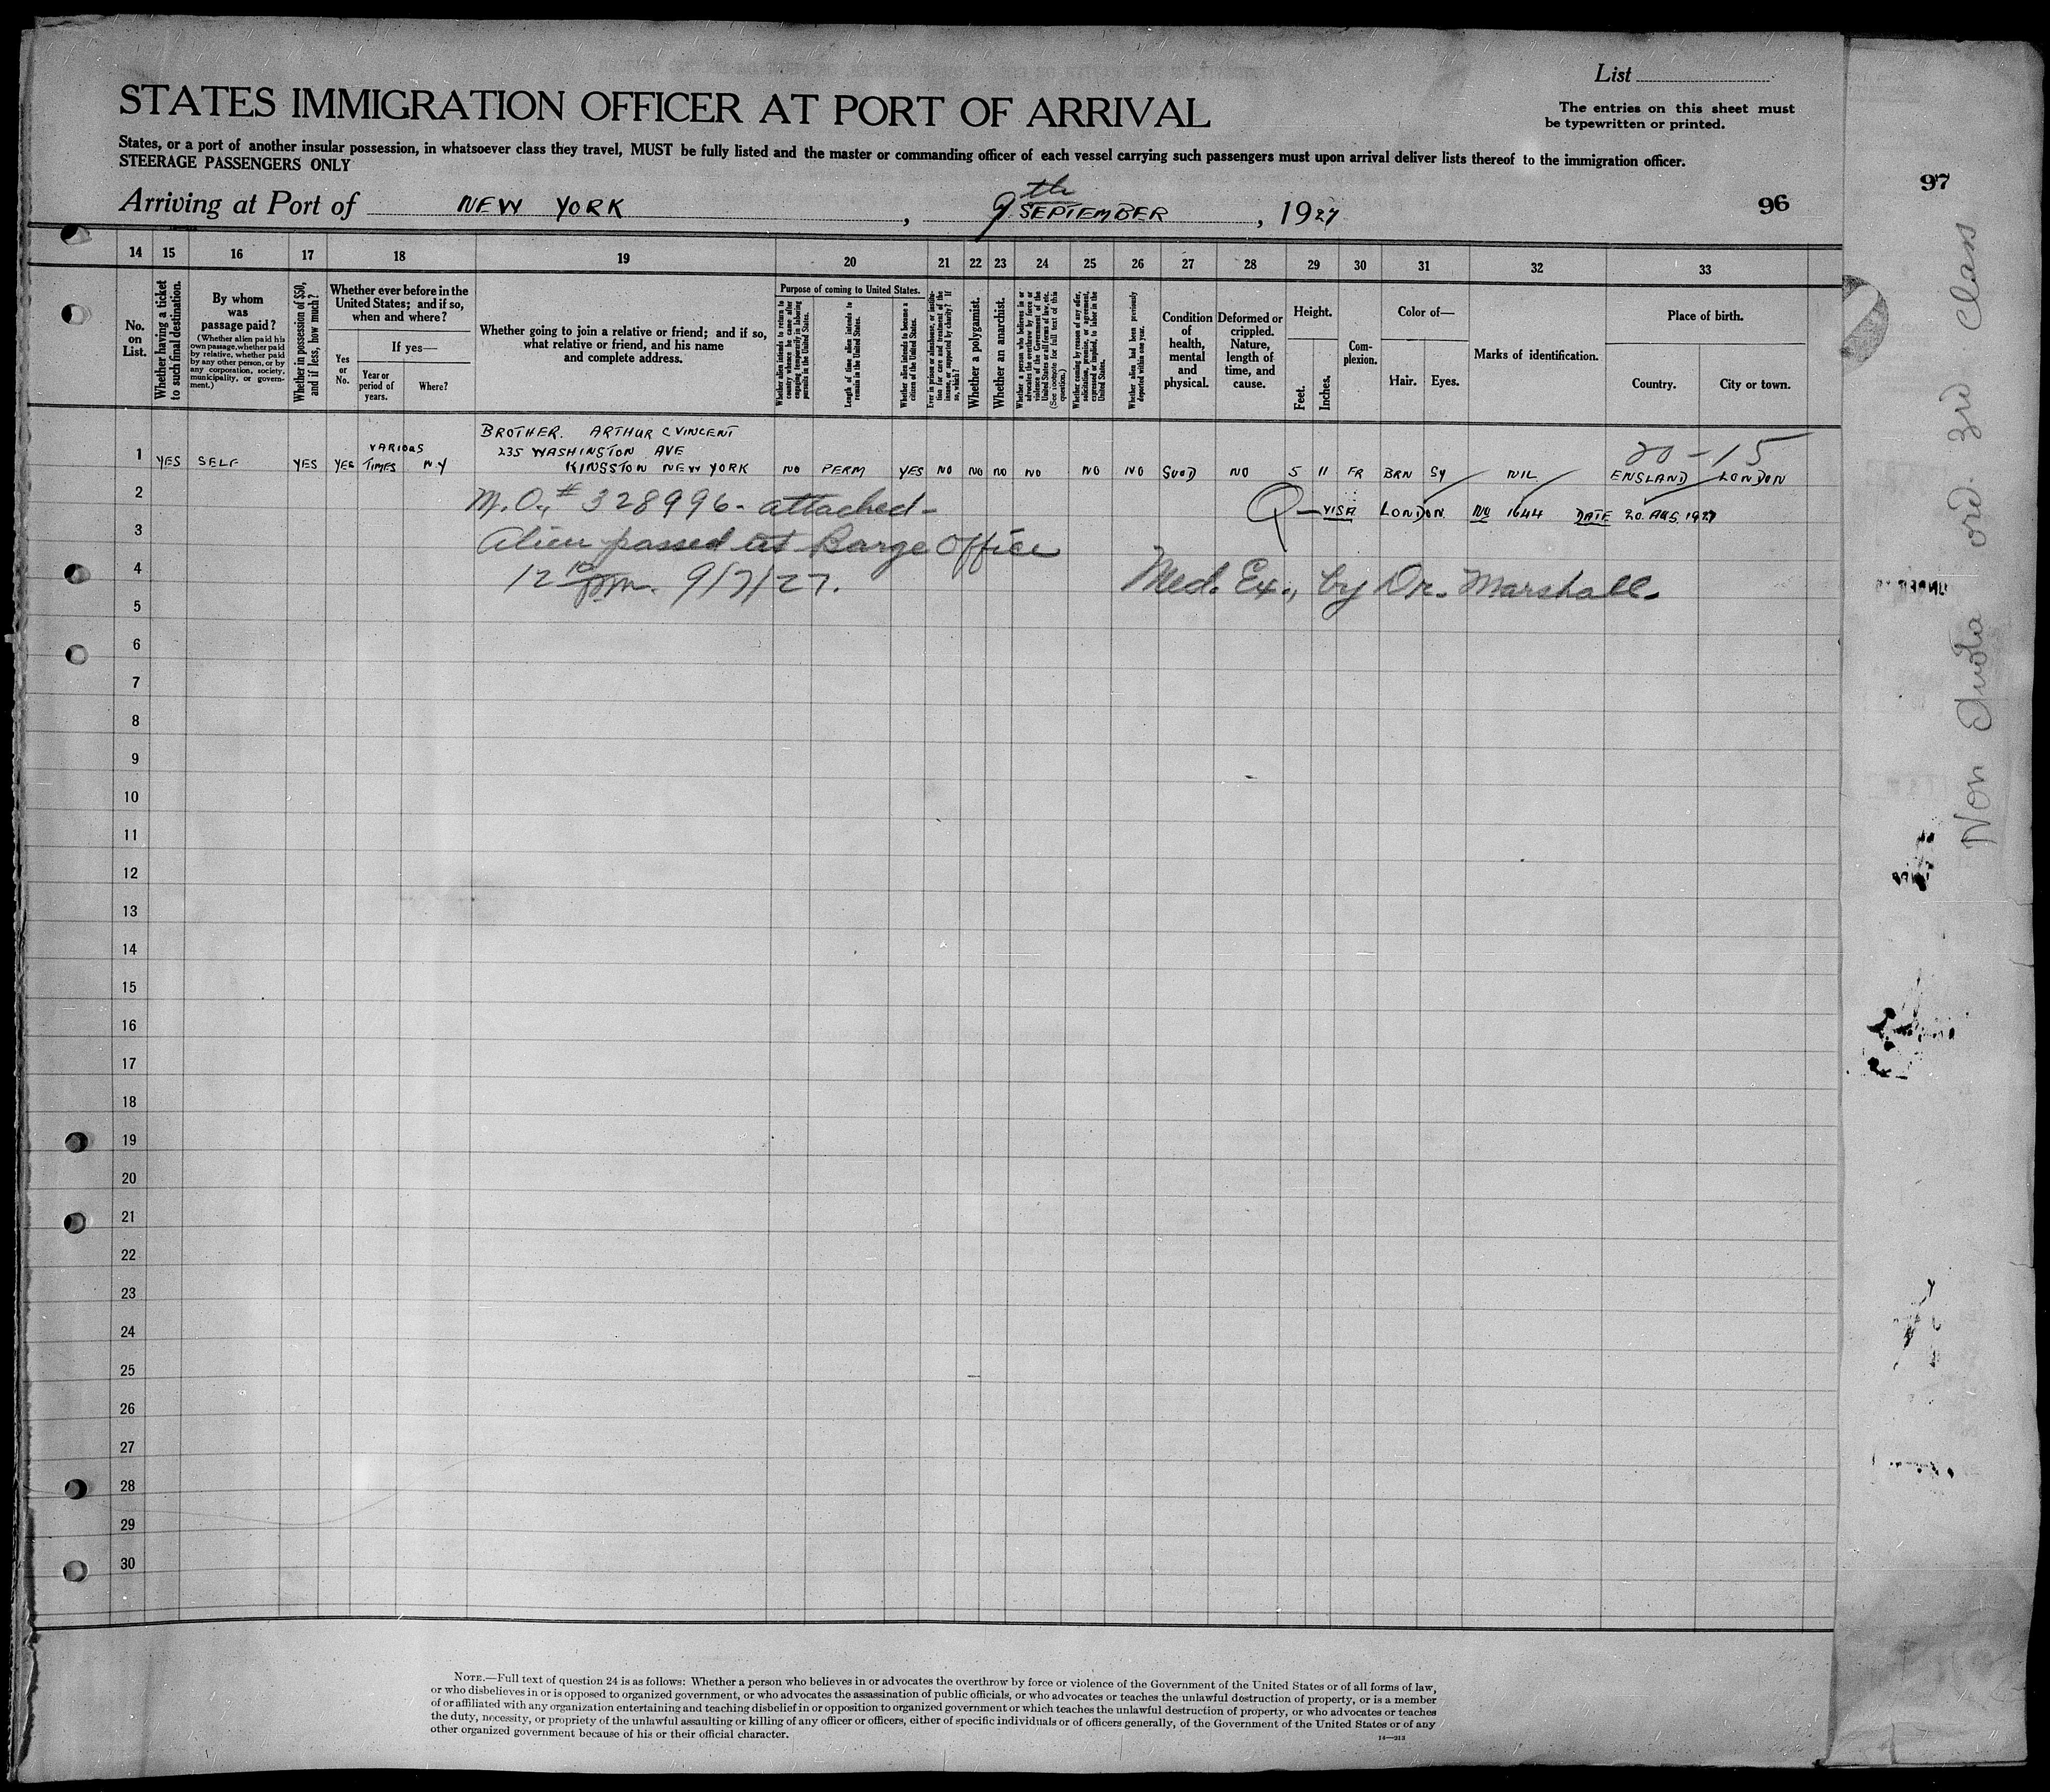 List
STATES IMMIGRATION OFFICER AT PORT OF ARRIVAL
The entries on this sheet must
be typewritten or printed.
States, or a port of another insular possession, in whatsoever class they travel, MUST be fully listed and the master or commanding officer of each vessel carrying such passengers must upon arrival deliver lists thereof to the immigration officer.
STEERAGE PASSENGERS ONLY
97
Arriving at Port of NEW YORK, 9th SEPTEMBER, 1927
96
14 15 16 17 18 19 20 21 22 23 24 25 26 27 28 29 30 31 32 33
No. on List.
Whether having a ticket to such final destination.
By whom was passage paid?
(Whether alien paid his own passage, whether paid by relative, whether paid by any other person, or by any corporation, society, municipality, or government.)
Whether in possession of $50, and if less, how much?
Whether ever before in the United States; and if so, when and where?
Yes or No.
If yes—
Year or period of years.
Where?
Whether going to join a relative or friend; and if so, what relative or friend, and his name and complete address.
Purpose of coming to United States.
Whether alien intends to return to country whence he came after engaging temporarily in laboring pursuits in the United States.
Length of time alien intends to remain in the United States.
Whether alien intends to become a citizen of the United States.
Ever in prison or almshouse, or institution for care and treatment of the insane, or supported by charity? If so, which?
Whether a polygamist.
Whether an anarchist.
Whether a person who believes in or advocates the overthrow by force or violence of the Government of the United States or all forms of law, etc. (See footnote for full text of this question.)
Whether coming by reason of any offer, solicitation, promise, or agreement, expressed or implied, to labor in the United States.
Whether alien had been previously deported within one year.
Condition of health, mental and physical.
Deformed or crippled. Nature, length of time, and cause.
Height.
Feet.
Inches.
Com-
plexion.
Color of—
Hair.
Eyes.
Marks of identification.
Place of birth.
Country.
City or town.
BROTHER. ARTHUR C VINCENT
235 WASHINGTON AVE
KINGSTON NEW YORK
20-15
1 YES SELF YES YES VARIOUS TIMES N.Y NO PERM YES NO NO NO NO NO NO GOOD NO 5 11 FR BRN GY NIL ENGLAND LONDON
2 M.O., # 328996- attached-
Q-VISA LONDON NO 1644 DATE 20. AUG. 1927
3 Alien passed at Barge Office
4 12 10 pm. 9/9/27.
Med. Ex., by Dr. Marshall.
5
6
7
8
9
10
11
12
13
14
15
16
17
18
19
20
21
22
23
24
25
26
27
28
29
30
Non Quota ord. 3rd Class
NOTE.—Full text of question 24 is as follows: Whether a person who believes in or advocates the overthrow by force or violence of the Government of the United States or of all forms of law,
or who disbelieves in or is opposed to organized government, or who advocates the assassination of public officials, or who advocates or teaches the unlawful destruction of property, or is a member
of or affiliated with any organization entertaining and teaching disbelief in or opposition to organized government or which teaches the unlawful destruction of property, or who advocates or teaches
the duty, necessity, or propriety of the unlawful assaulting or killing of any officer or officers, either of specific individuals or of officers generally, of the Government of the United States or of any
other organized government because of his or their official character.
14—313